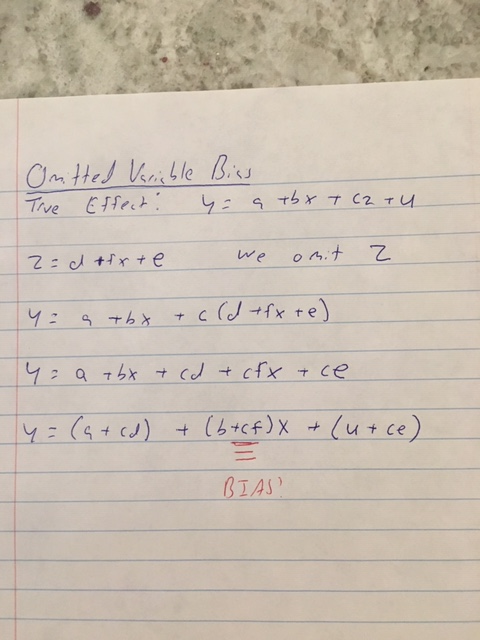 Omitted Variable Bias
True Effect: y = a + bx + cz + u
z = d + fx + e we omit z
y = a + bx + c(d + fx + e)
y = a + bx + cd + cfx + ce
y = (a + cd) + (b + cf)x + (u + ce)
BIAS!